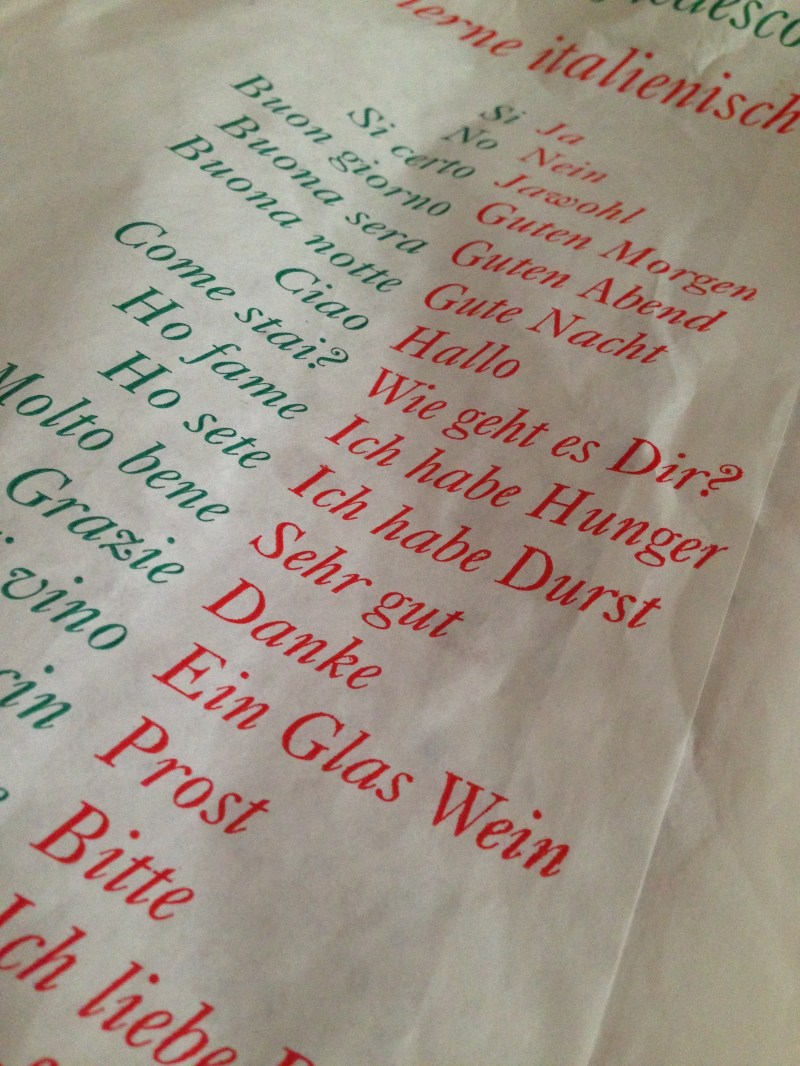 italienisch
Si Ja
No Nein
Si certo Jawohl
Buon giorno Guten Morgen
Buona sera Guten Abend
Buona notte Gute Nacht
Ciao Hallo
Come stai? Wie geht es Dir?
Ho fame Ich habe Hunger
Ho sete Ich habe Durst
Molto bene Sehr gut
Grazie Danke
vino Ein Glas Wein
Prost
Bitte
Ich liebe